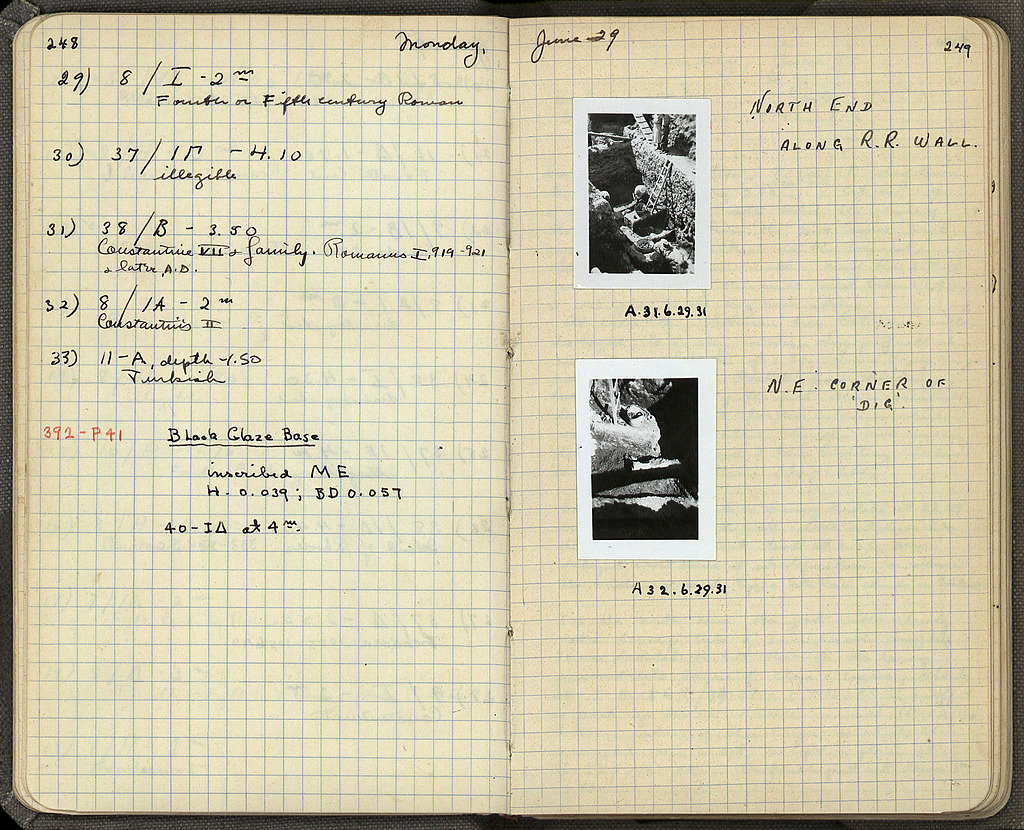 248
Monday,
29) 8 / I - 2 m
Fourth or Fifth century Roman
30) 37 / IΓ - 4.10
illegible
31) 38 / B - 3.50
Constantine VII & family. Romanus I, 919-921
& later, A.D.
32) 8 / IA - 2 m
Constantius II
33) 11 - A, depth -1.50
Turkish
392-P41 Black Glaze Base
inscribed ME
H. 0.039; BD 0.057
40-IΔ at 4 m.
June 29
249
NORTH END
ALONG R.R. WALL.
A.31.6.29.31
N.E. CORNER OF
'DIG'.
A32.6.29.31